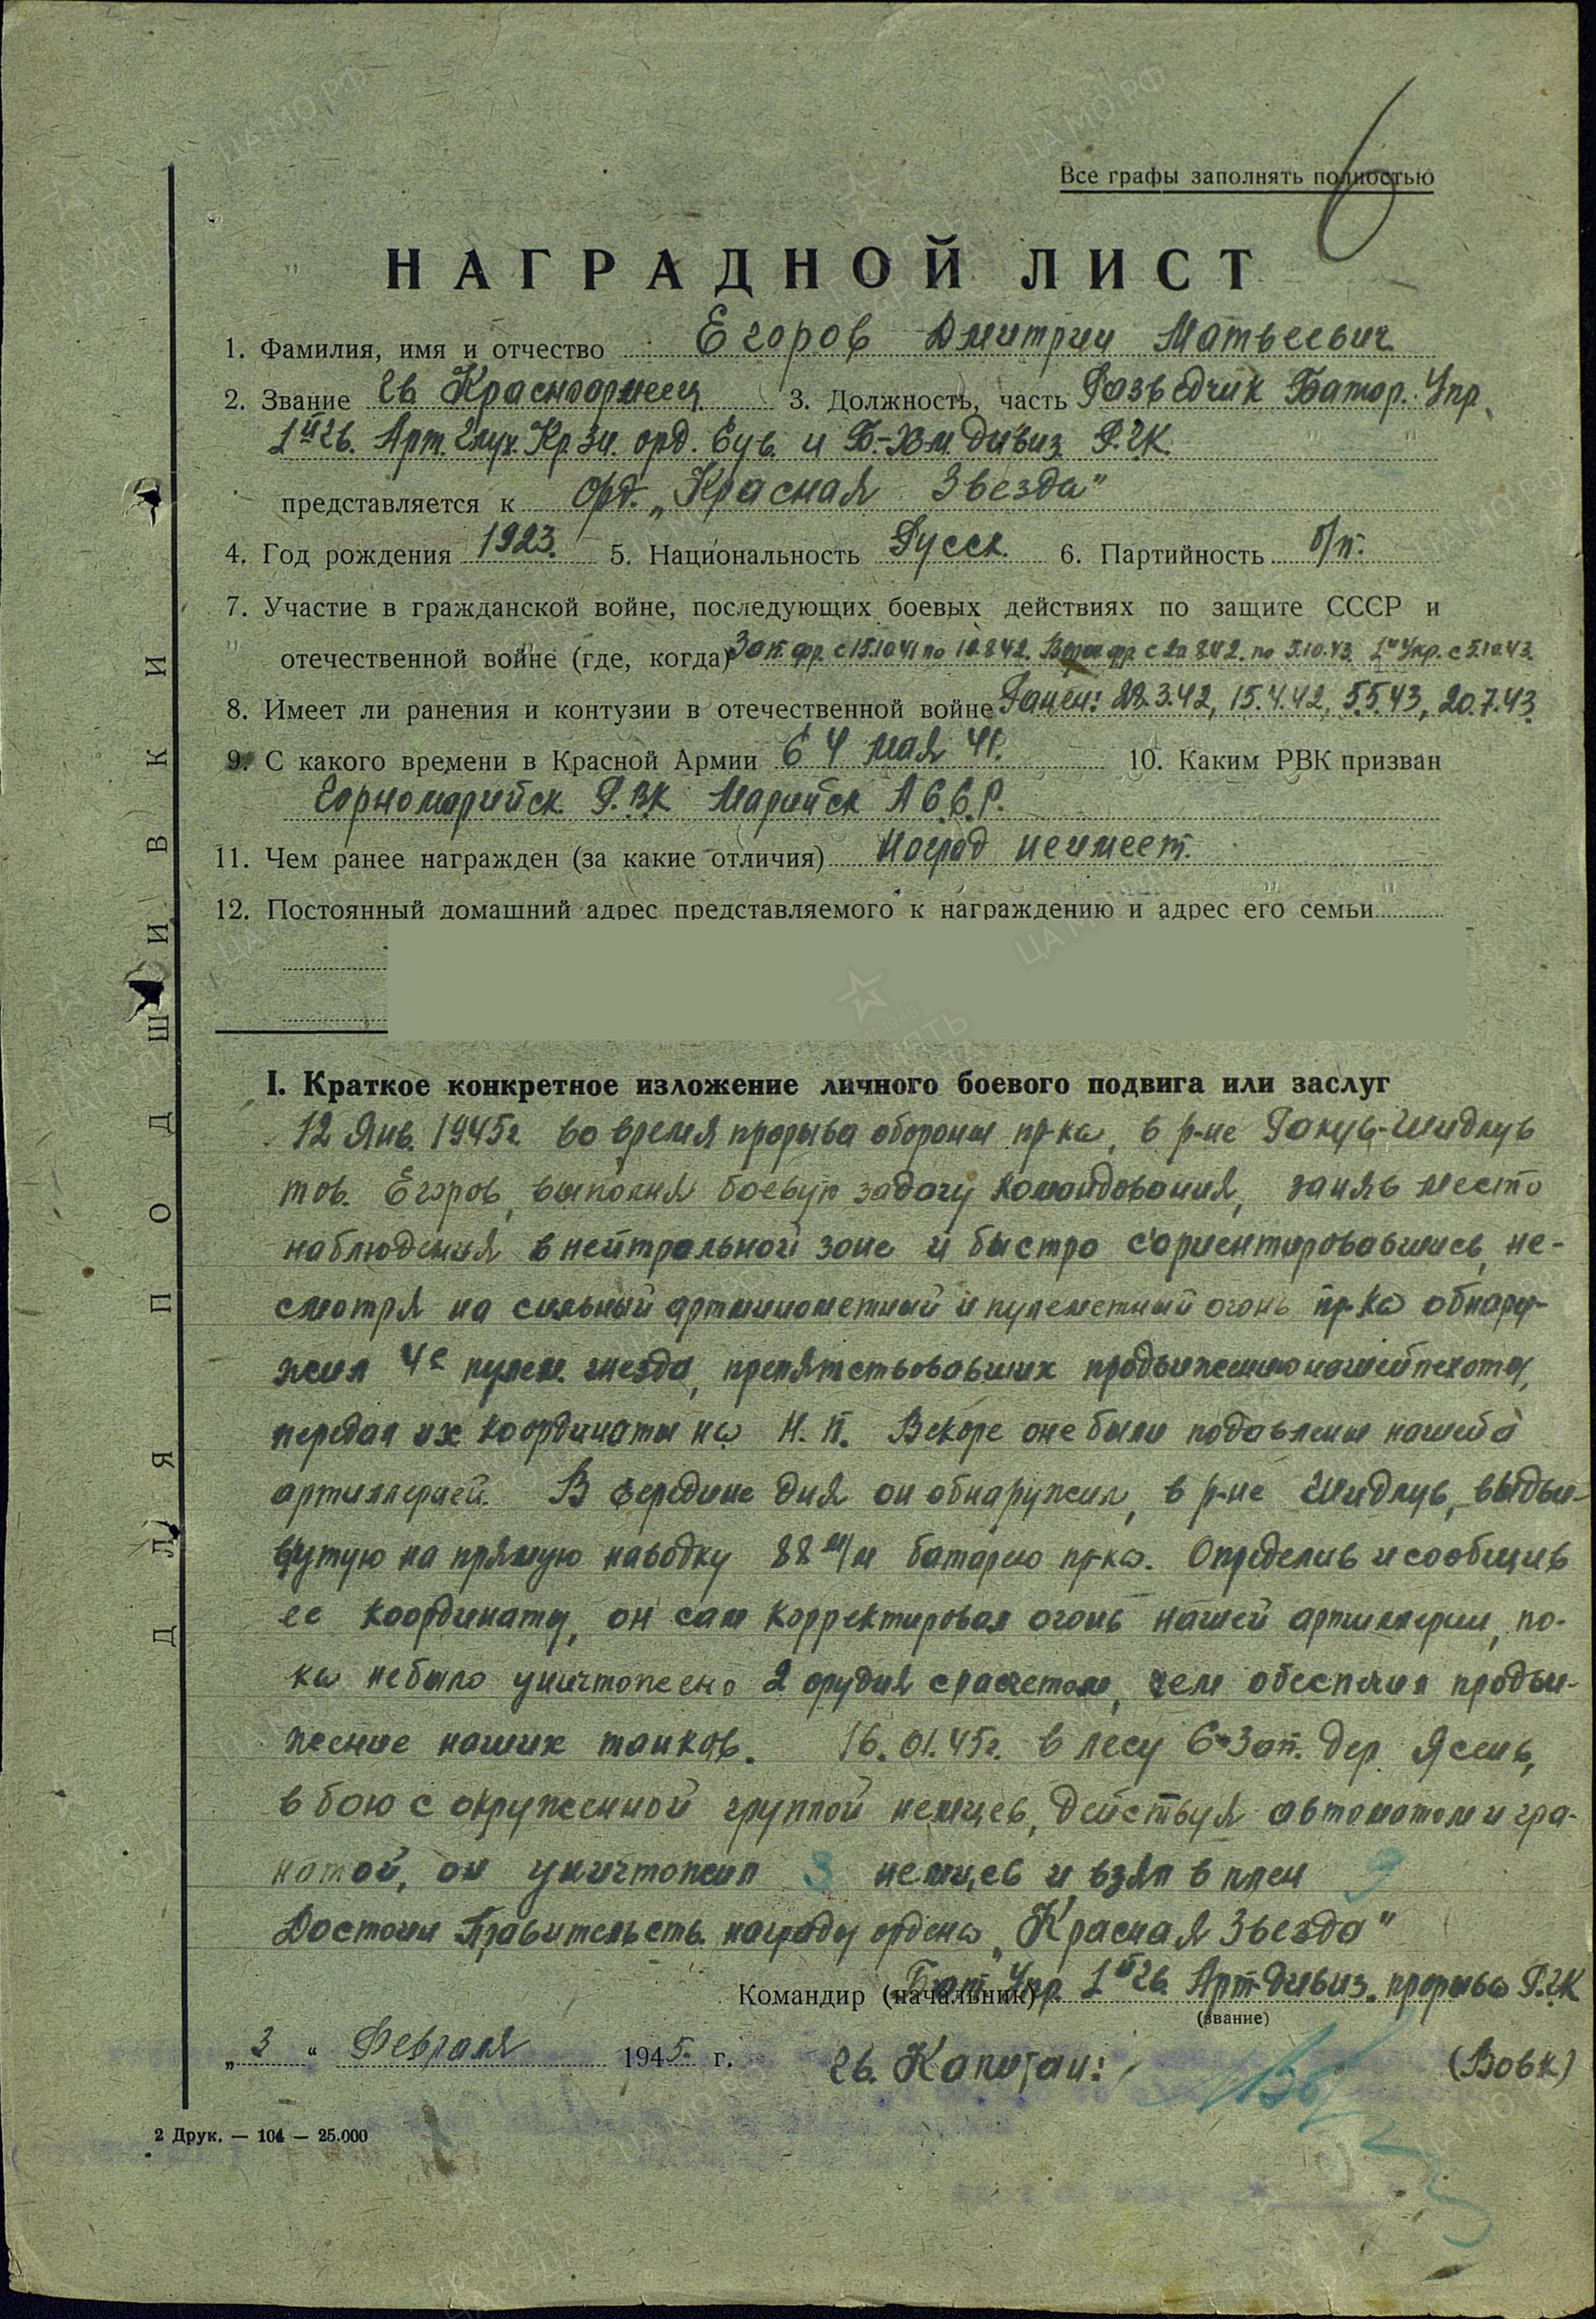 6
Все графы заполнять полностью
НАГРАДНОЙ ЛИСТ
1. Фамилия, имя и отчество Егоров Дмитрий Матвеевич
2. Звание Гв Красноармеец 3. Должность, часть Разведчик Батар. Упр.
1й Гв. Арт. Глух. Кр.Зн. орд. Сув. и Б-Хм. дивиз. Р.Г.К.
представляется к орд. „Красная Звезда"
4. Год рождения 1923. 5. Национальность Русск. 6. Партийность б/п.
7. Участие в гражданской войне, последующих боевых действиях по защите СССР и
отечественной войне (где, когда) Зап. фр. с 15.10.41 по 10.8.42. фр. с 20.8.42. по 5.10.43. 1й Укр. с 5.10.43.
8. Имеет ли ранения и контузии в отечественной войне Ранен: 22.3.42, 15.4.42, 5.5.43, 20.7.43.
9. С какого времени в Красной Армии С 4 мая 41. 10. Каким РВК призван
Горномарийск Р.В.К Марийск А С.С.Р.
11. Чем ранее награжден (за какие отличия) Наград неимеет.
12. Постоянный домашний адрес представляемого к награждению и адрес его семьи
I. Краткое конкретное изложение личного боевого подвига или заслуг
12 Янв. 1945г. во время прорыва обороны пр-ка, в р-не Ракув-Шидлув
тов. Егоров, выполняя боевую задачу командования, заняв место
наблюдения в нейтральной зоне и быстро с'ориентировавшись, не-
смотря на сильный артминометный и пулеметный огонь пр-ка обнару-
жил 4е пулем. гнезда, препятствовавших продвижению нашей пехоты,
передал их координаты на Н.П. Вскоре оне были подавлены нашей
артиллерией. В середине дня он обнаружил, в р-не Шидлув, выдви-
нутую на прямую наводку 88 м/м батарею пр-ка. Определив и сообщив
ее координаты, он сам корректировал огонь нашей артиллерии, по-
ка небыло уничтожено 2 орудия с расчетом, чем обеспечил продви-
жение наших танков. 16.01.45г. в лесу С-Зап. дер. Ясень,
в бою с окруженной группой немцев, действуя автоматом и гра-
натой, он уничтожил 3 немцев и взял в плен 9
Достоин Правительств. награды ордена „Красная Звезда"
Командир (начальник) Бат. Упр. 1й Гв. Арт. дивиз. прорыва Р.Г.К
(звание)
„3" Февраля 1945. г. Гв. Капитан: (Вовк)
2 Друк. — 104 — 25.000
ДЛЯ ПОДШИВКИ